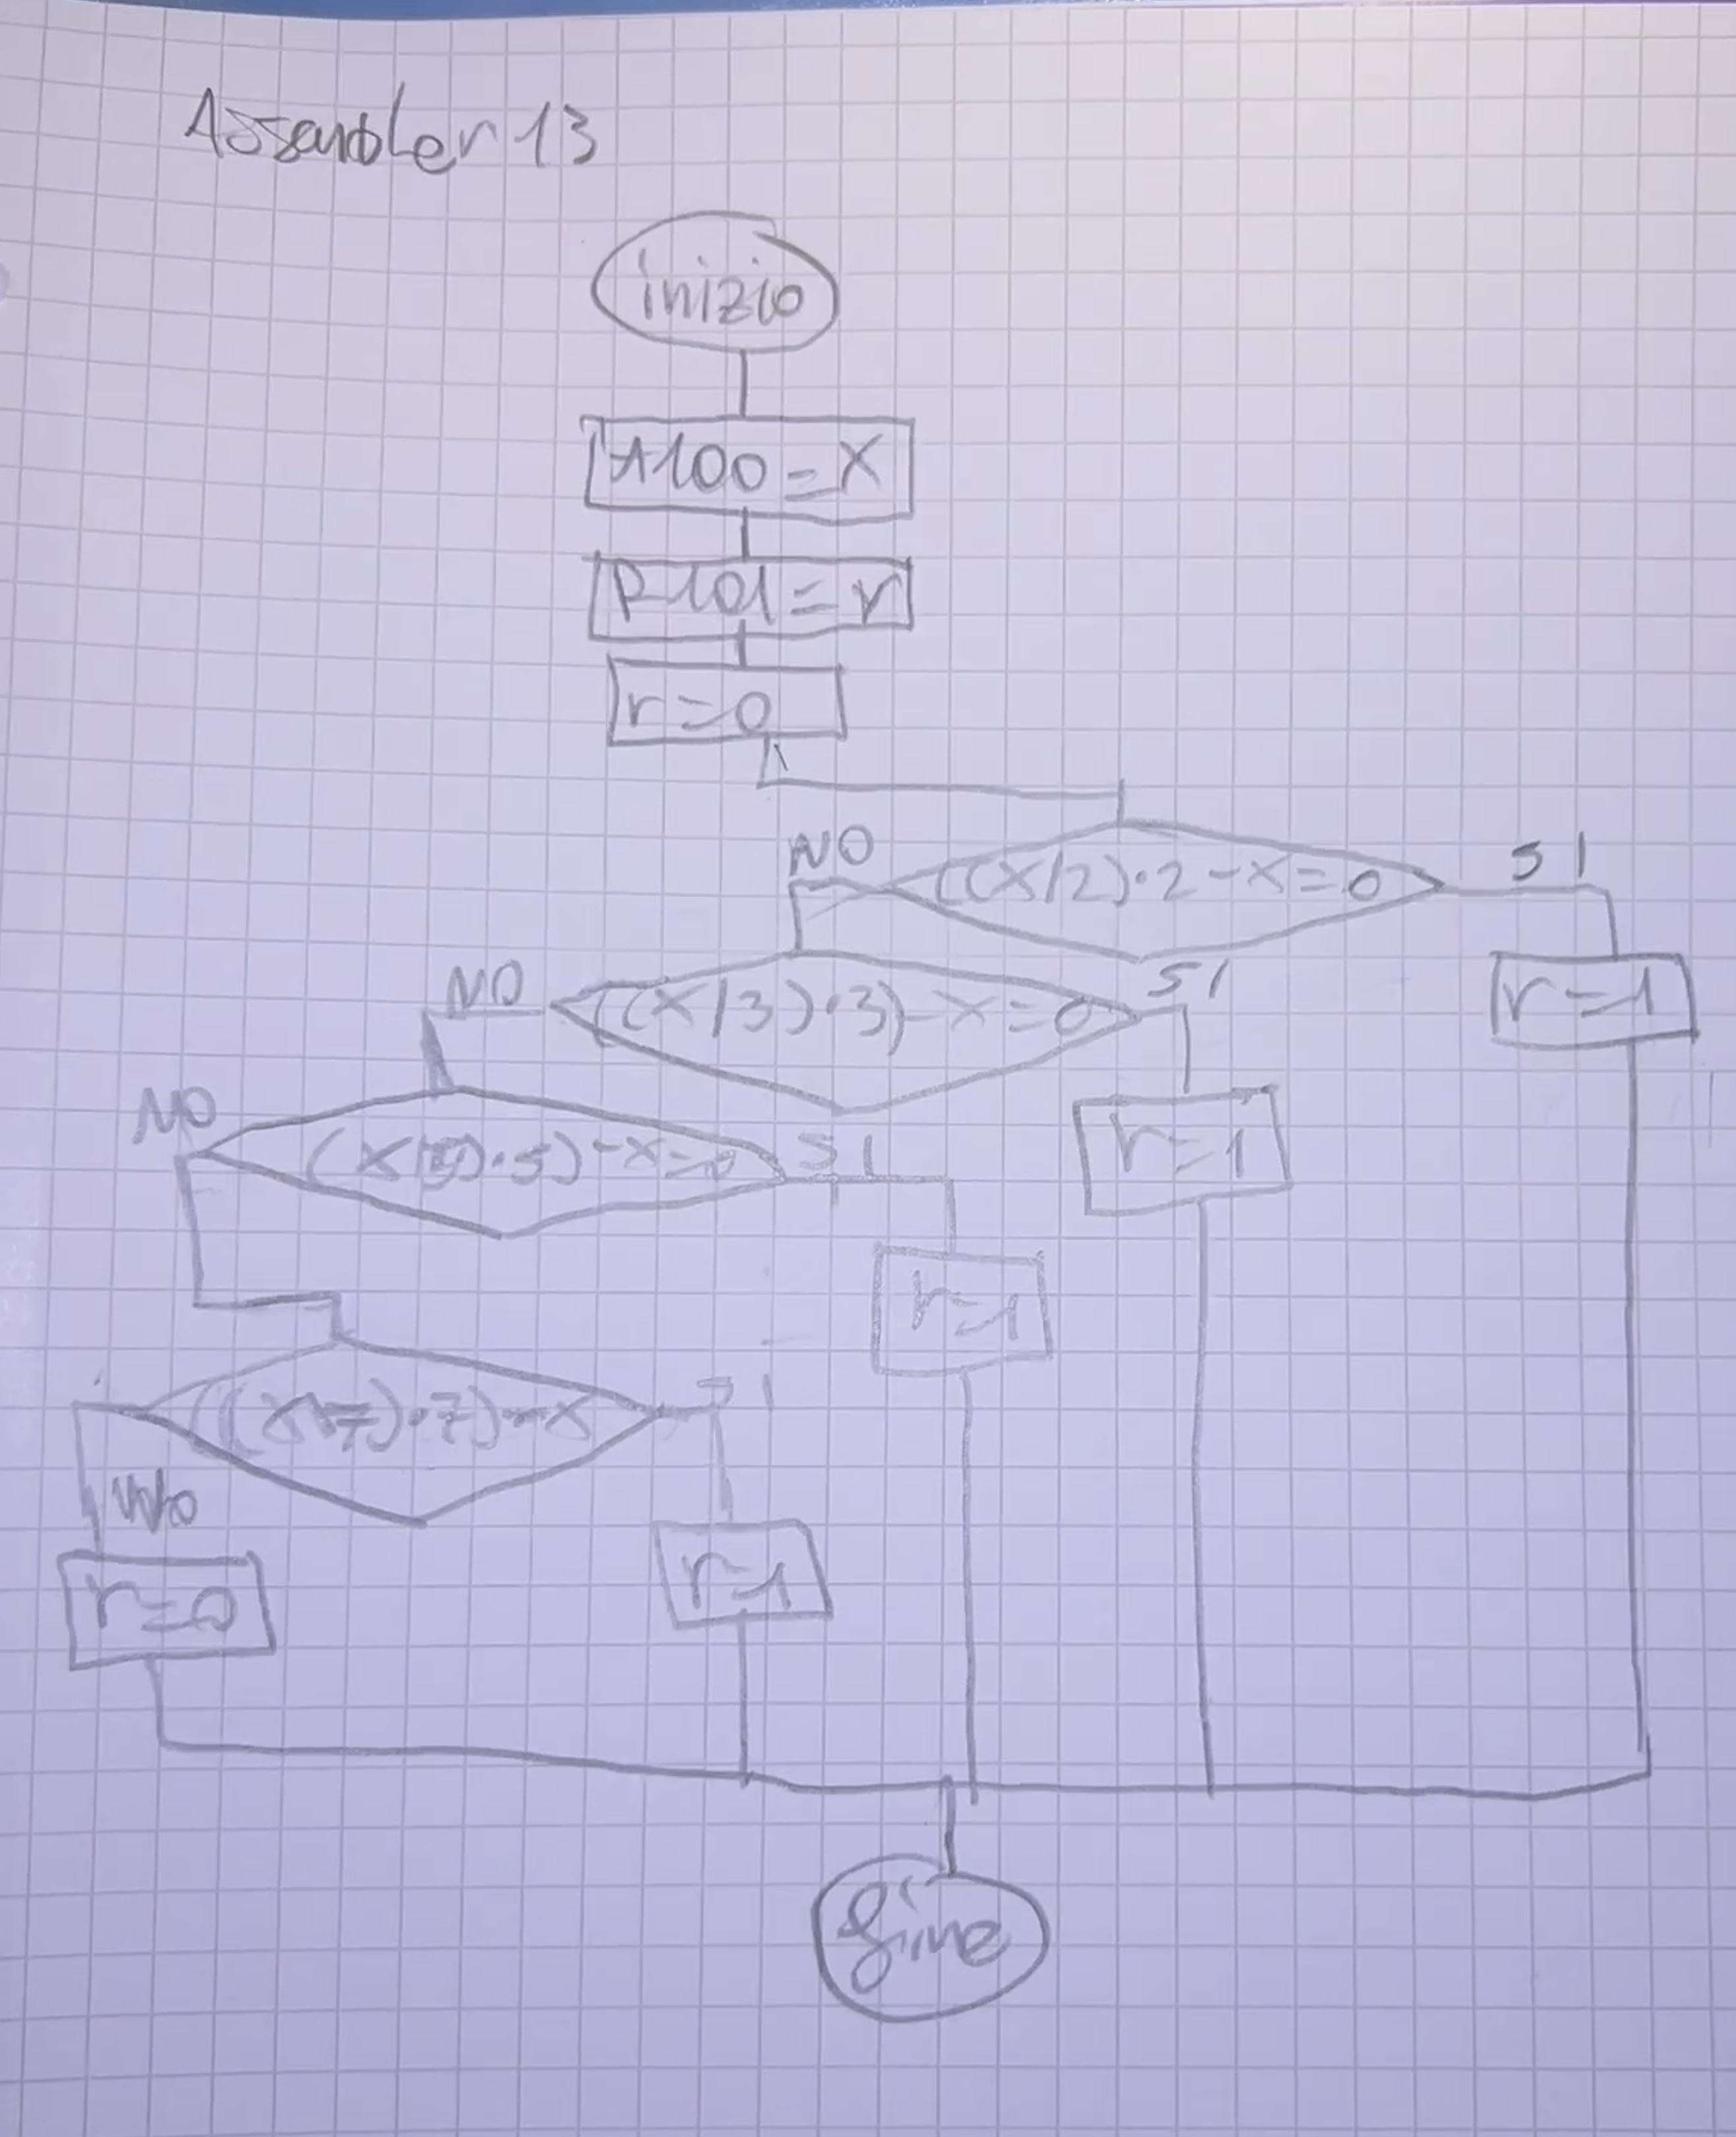 Assembler 13
inizio
A100=X
R101=r
r=0
NO
((X/2)·2-X=0
SI
NO
((X/3)·3)-X=0
SI
r=1
NO
(X/5)·5)-X=0
SI
r=1
r=1
((X/7)·7)-X
SI
NO
r=0
r=1
fine